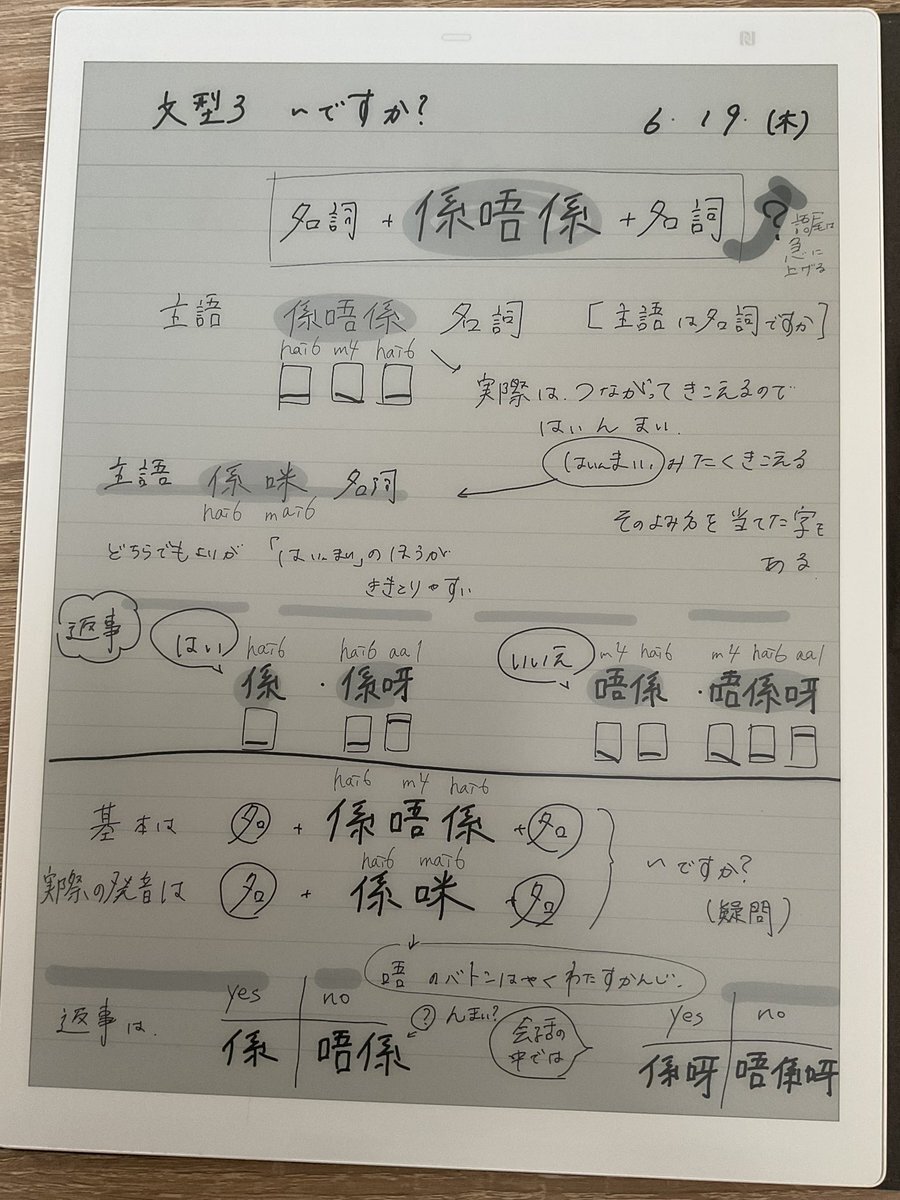 文型3 〜ですか? 6.19.(木)
名詞 + 係唔係 + 名詞 ?
語尾は
急に
上げる
主語 係唔係 名詞 [主語は名詞ですか]
hai6 m4 hai6
実際は、つながってきこえるので
はい ん まい.
主語 係咪 名詞 はいんまい みたくきこえる
hai6 mai6
そのよみ方を当てた字も
ある
どちらでもよいが 「はいんまい」のほうが
ききとりやすい
返事 はい hai6 hai6 aa1 いいえ m4 hai6 m4 hai6 aa1
係 ・係呀 唔係 ・唔係呀
hai6 m4 hai6
基本は 名 + 係唔係 + 名
hai6 mai6
実際の発音は 名 + 係咪 + 名
〜ですか?
(疑問)
唔 のバトンはやくわたすかんじ.
返事は. yes no ? んまい? 会話の中では yes no
係 唔係 係呀 唔係呀